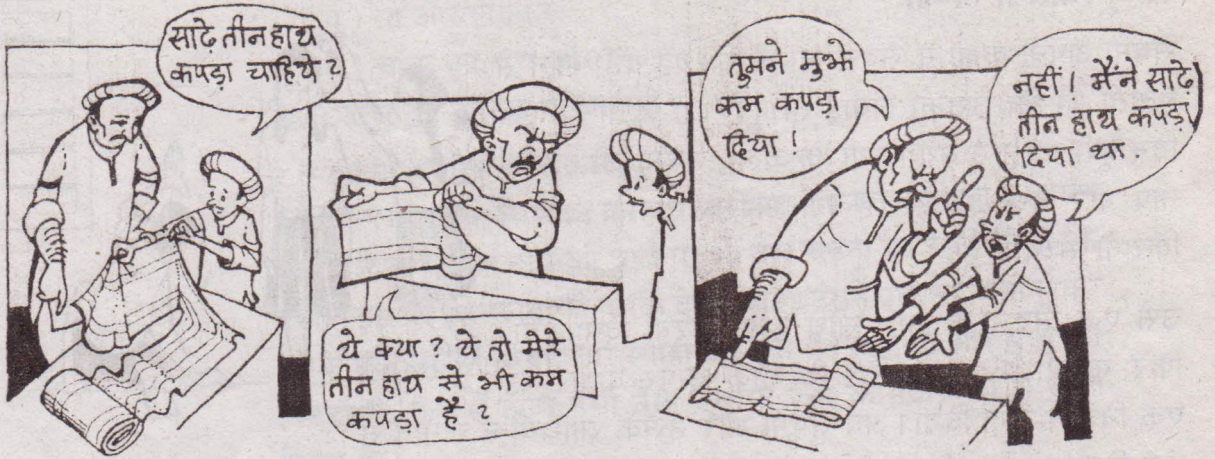 साढ़े तीन हाथ
कपड़ा चाहिये?
ये क्या? ये तो मेरे
तीन हाथ से भी कम
कपड़ा है?
तुमने मुझे
कम कपड़ा
दिया!
नहीं। मैंने साढ़े
तीन हाथ कपड़ा
दिया था.